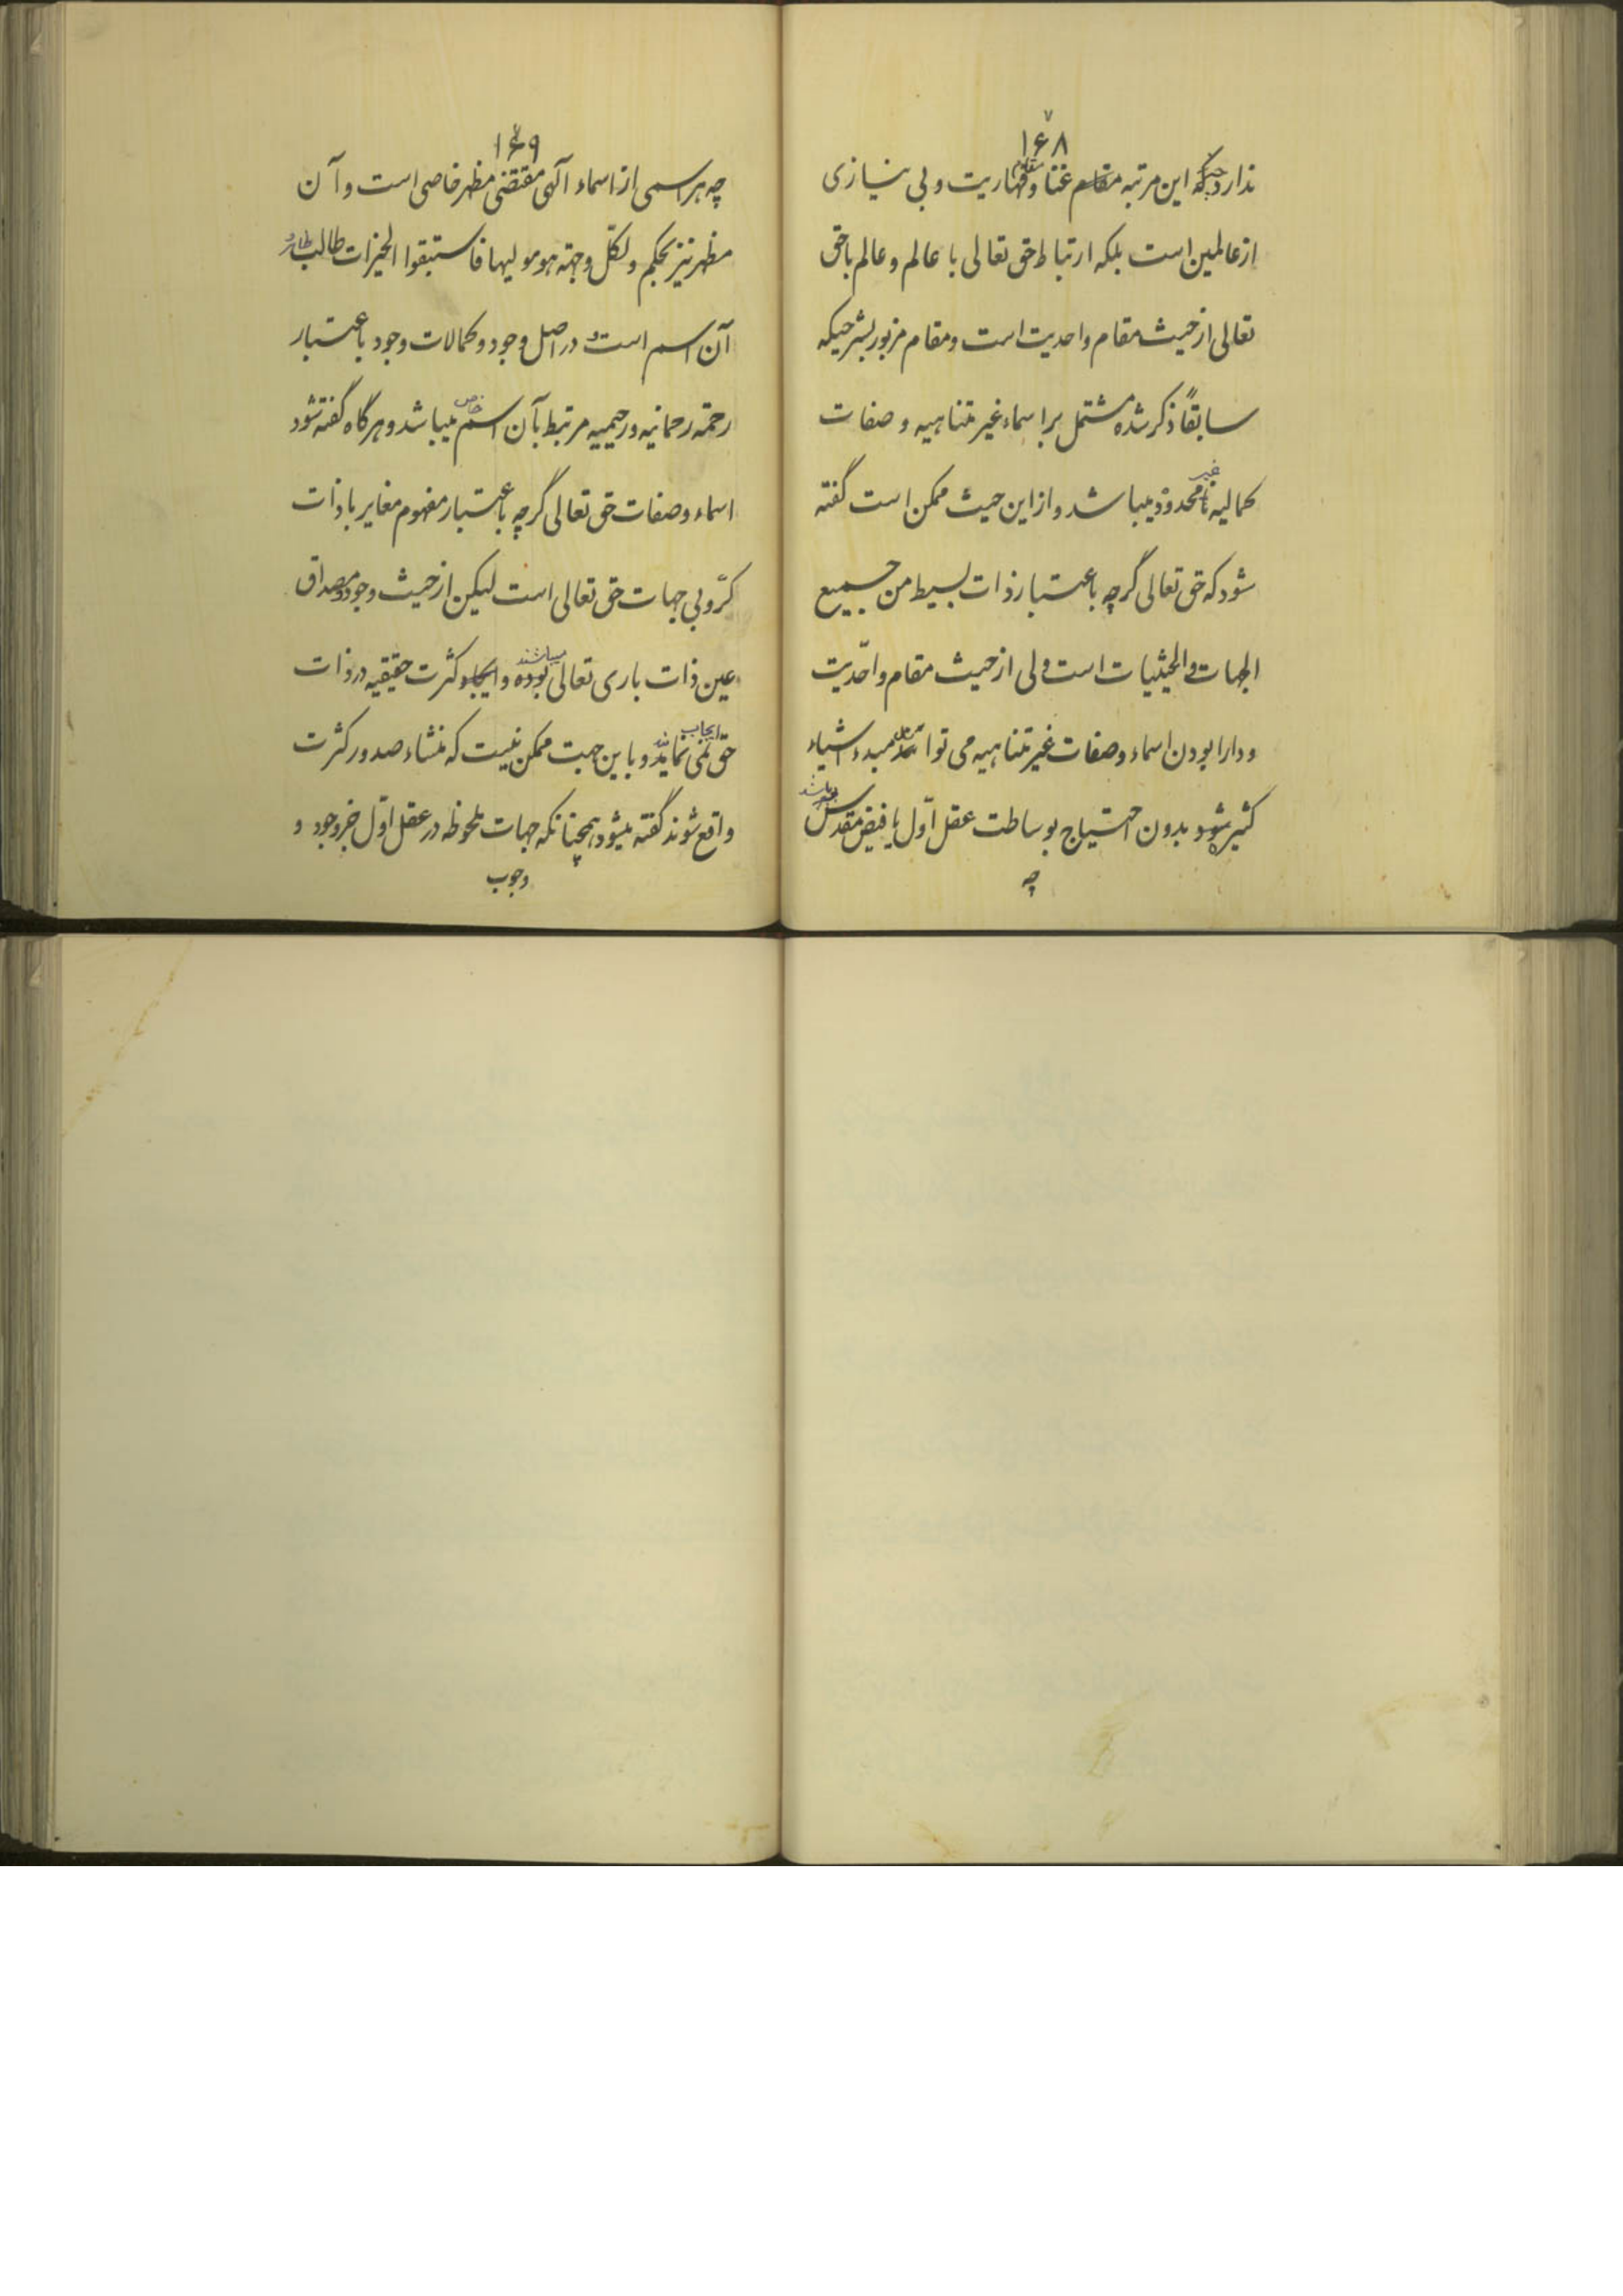 ۱۶۸
ندارد چه که این مرتبه مقام غنا و قهاریت و بی نیازی
از عالمین است بلکه ارتباط حق تعالی با عالم و عالم با حق
تعالی از حیث مقام واحدیت است و مقام مزبور بشرحیکه
سابقاً ذکر شده مشتمل بر اسماء غیر متناهیه و صفات
کمالیه غیر محدوده میباشد و از این حیث ممکن است گفته
شود که حق تعالی گرچه باعتبار ذات بسیط من جمیع
الجهات و الحیثیات است ولی از حیث مقام واحدیت
و دارا بودن اسماء و صفات غیر متناهیه می تواند مبدء اشیاء
کثیره شود بدون احتیاج بوساطت عقل اوّل یا فیض مقدس
چه
۱۶۹
چه هر اسمی از اسماء آلهی مقتضی مظهر خاصی است و آن
مظهر نیز بحکم ولکلّ وجهته هو مولیها فاستبقوا الخیرات طالب
آن اسم است و در اصل وجود و کمالات وجود باعتبار
رحمته رحمانیه و رحیمیه مرتبط بآن اسم خاص میباشد و هرگاه گفته شود
اسماء و صفات حق تعالی گرچه باعتبار مفهوم مغایر با ذات
کرّوبی جهات حق تعالی است لیکن از حیث وجود و مصداق
عین ذات باری تعالی بوده میباشند و ایجاب کثرت حقیقیه در ذات
حق نمی نمایند ایجاب و باین جهت ممکن نیست که منشاء صدور کثرت
واقع شوند گفته میشود همچنانکه جهات ملحوظه در عقل اوّل جز وجود و
وجوب